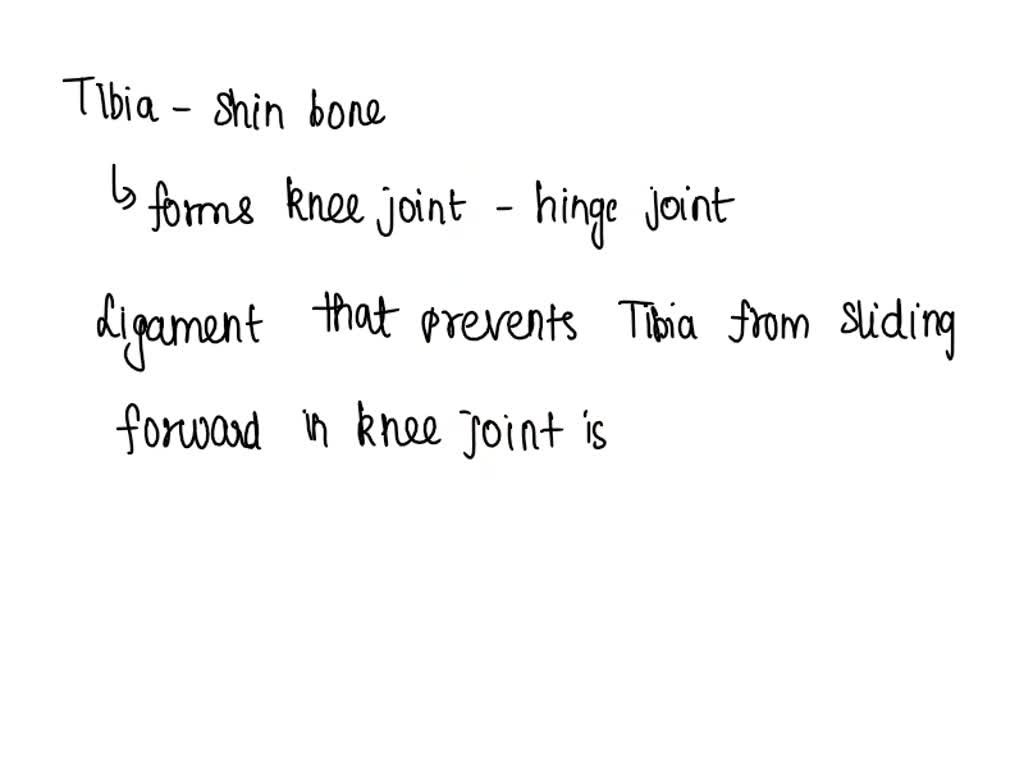 Tibia - shin bone
↳ forms knee joint - hinge joint
Ligament that prevents Tibia from sliding
forward in knee joint is